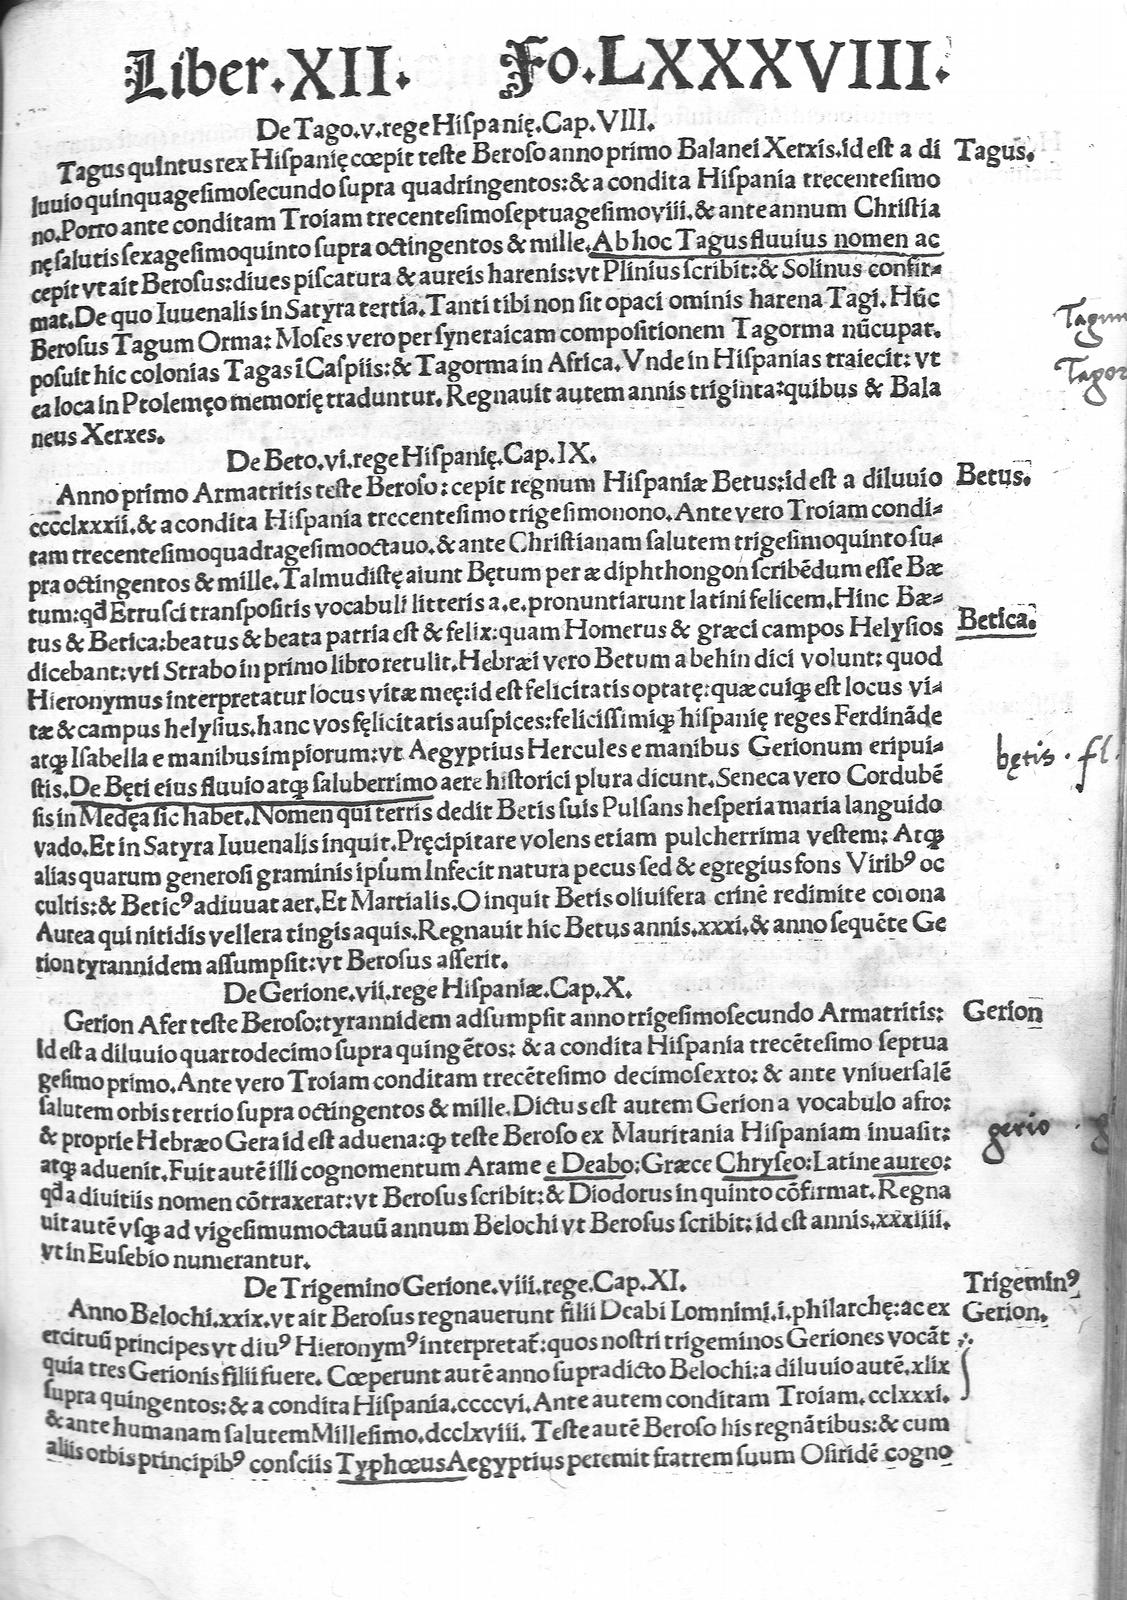 Liber.XII. Fo.LXXXVIII.
De Tago.v.rege Hiſpanię.Cap.VIII.
Tagus quintus rex Hiſpanię cœpit teſte Beroſo anno primo Balanei Xerxis.id eſt a di Tagus.
luuio quinquageſimoſecundo ſupra quadringentos:& a condita Hiſpania trecenteſimo
no.Porro ante conditam Troiam trecenteſimoſeptuageſimoviii.& ante annum Chriſtia
nę ſalutis ſexageſimoquinto ſupra octingentos & mille.Ab hoc Tagus fluuius nomen ac
cepit vt ait Beroſus:diues piſcatura & aureis harenis:vt Plinius ſcribit:& Solinus confir⸗
mat.De quo Iuuenalis in Satyra tertia.Tanti tibi non ſit opaci ominis harena Tagi.Hūc
Beroſus Tagum Orma:Moſes vero per ſyneraicam compoſitionem Tagorma nūcupat.
poſuit hic colonias Tagas ī Caſpiis:& Tagorma in Africa.Vnde in Hiſpanias traiecit:vt
ea loca in Ptolemęo memorię traduntur.Regnauit autem annis triginta:quibus & Bala
neus Xerxes.
De Beto.vi.rege Hiſpanię.Cap.IX.
Anno primo Armatritis teſte Beroſo:cepit regnum Hiſpaniæ Betus:id eſt a diluuio Betus.
cccclxxxii.& a condita Hiſpania trecenteſimo trigeſimonono.Ante vero Troiam condi⸗
tam trecenteſimoquadrageſimooctauo.& ante Chriſtianam ſalutem trigeſimoquinto ſu⸗
pra octingentos & mille.Talmudiſtę aiunt Bętum per æ diphthongon ſcribēdum eſſe Bæ
tum:qđ Etruſci tranſpoſitis vocabuli litteris a.e.pronuntiarunt latini felicem.Hinc Bæ⸗
tus & Betica:beatus & beata patria eſt & felix:quam Homerus & græci campos Helyſios Betica.
dicebant:vti Strabo in primo libro retulit.Hebræi vero Betum a behin dici volunt:quod
Hieronymus interpretatur locus vitæ meę:id eſt felicitatis optatę:quæ cuiqꝫ eſt locus vi⸗
tæ & campus helyſius.hanc vos fęlicitatis auſpices:feliciſſimiqꝫ hiſpanię reges Ferdināde
atqꝫ Iſabella e manibus impiorum:vt Aegyptius Hercules e manibus Gerionum eripui⸗
ſtis.De Bęti eius fluuio atqꝫ ſaluberrimo aere hiſtorici plura dicunt.Seneca vero Cordubē
ſis in Medęa ſic habet.Nomen qui terris dedit Betis ſuis Pulſans heſperia maria languido
vado.Et in Satyra Iuuenalis inquit.Pręcipitare volens etiam pulcherrima veſtem: Atqꝫ
alias quarum generoſi graminis ipſum Infecit natura pecus ſed & egregius fons Viribꝰ oc
cultis:& Beticꝰ adiuuat aer.Et Martialis.O inquit Betis oliuifera crinē redimite corona
Aurea qui nitidis vellera tingis aquis.Regnauit hic Betus annis.xxxi.& anno ſequēte Ge
rion tyrannidem aſſumpſit:vt Beroſus aſſerit.
De Gerione.vii.rege Hiſpaniæ.Cap.X.
Gerion Afer teſte Beroſo:tyrannidem adſumpſit anno trigeſimoſecundo Armatritis: Gerion
Id eſt a diluuio quartodecimo ſupra quingētos: & a condita Hiſpania trecēteſimo ſeptua
geſimo primo.Ante vero Troiam conditam trecēteſimo decimoſexto:& ante vniuerſalē
ſalutem orbis tertio ſupra octingentos & mille.Dictus eſt autem Gerion a vocabulo afro:
& proprie Hebræo Gera id eſt aduena:qꝫ teſte Beroſo ex Mauritania Hiſpaniam inuaſit:
atqꝫ aduenit.Fuit autē illi cognomentum Arame e Deabo:Græce Chryſeo:Latine aureo:
qđ a diuitiis nomen cōtraxerat:vt Beroſus ſcribit:& Diodorus in quinto cōfirmat.Regna
uit autē vſqꝫ ad vigeſimumoctauū annum Belochi vt Beroſus ſcribit:id eſt annis.xxxiiii.
vt in Euſebio numerantur.
De Trigemino Gerione.viii.rege.Cap.XI. Trigeminꝰ
Anno Belochi.xxix.vt ait Beroſus regnauerunt filii Deabi Lomnimi.i.philarchę:ac ex Gerion.
ercituū principes vt diuꝰ Hieronymꝰ interpretat̄:quos noſtri trigeminos Geriones vocāt
quia tres Gerionis filii fuere. Cœperunt autē anno ſupradicto Belochi:a diluuio autē.xlix
ſupra quingentos:& a condita Hiſpania.ccccvi.Ante autem conditam Troiam.cclxxxi.
& ante humanam ſalutem Milleſimo.dcclxviii. Teſte autē Beroſo his regnātibus:& cum
aliis orbis principibꝰ conſciis Typhœus Aegyptius peremit fratrem ſuum Oſiridē cogno
bętis . fl.
gerio